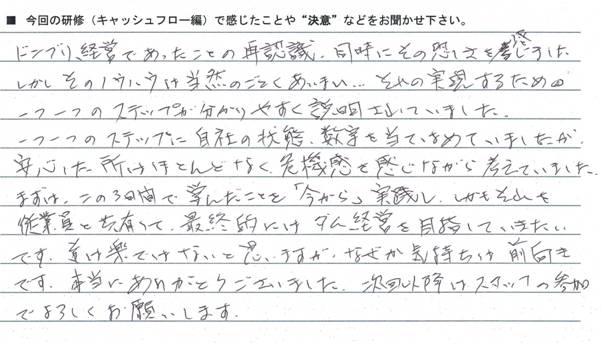 ■ 今回の研修（キャッシュフロー編）で感じたことや“決意”などをお聞かせ下さい。
ドンブリ経営であったことの再認識、同時にその恐しさを感じました
しかしそのノウハウは当然のごとくあいまい… それの実現するための
一つ一つのステップが分かりやすく説明されていました。
一つ一つのステップに自社の状態、数字を当てはめていましたが、
安心した所はほとんどなく、危機感を感じながら考えていました。
まずは、この3日間で学んだことを「今から」実践し、しかもそれを
従業員と共有して、最終的にはダム経営を目指していきたい
です。道は楽ではないと思いますが、なぜか気持ちは前向き
です。本当にありがとうございました。次回以降はスタッフの参加
でよろしくお願いします。